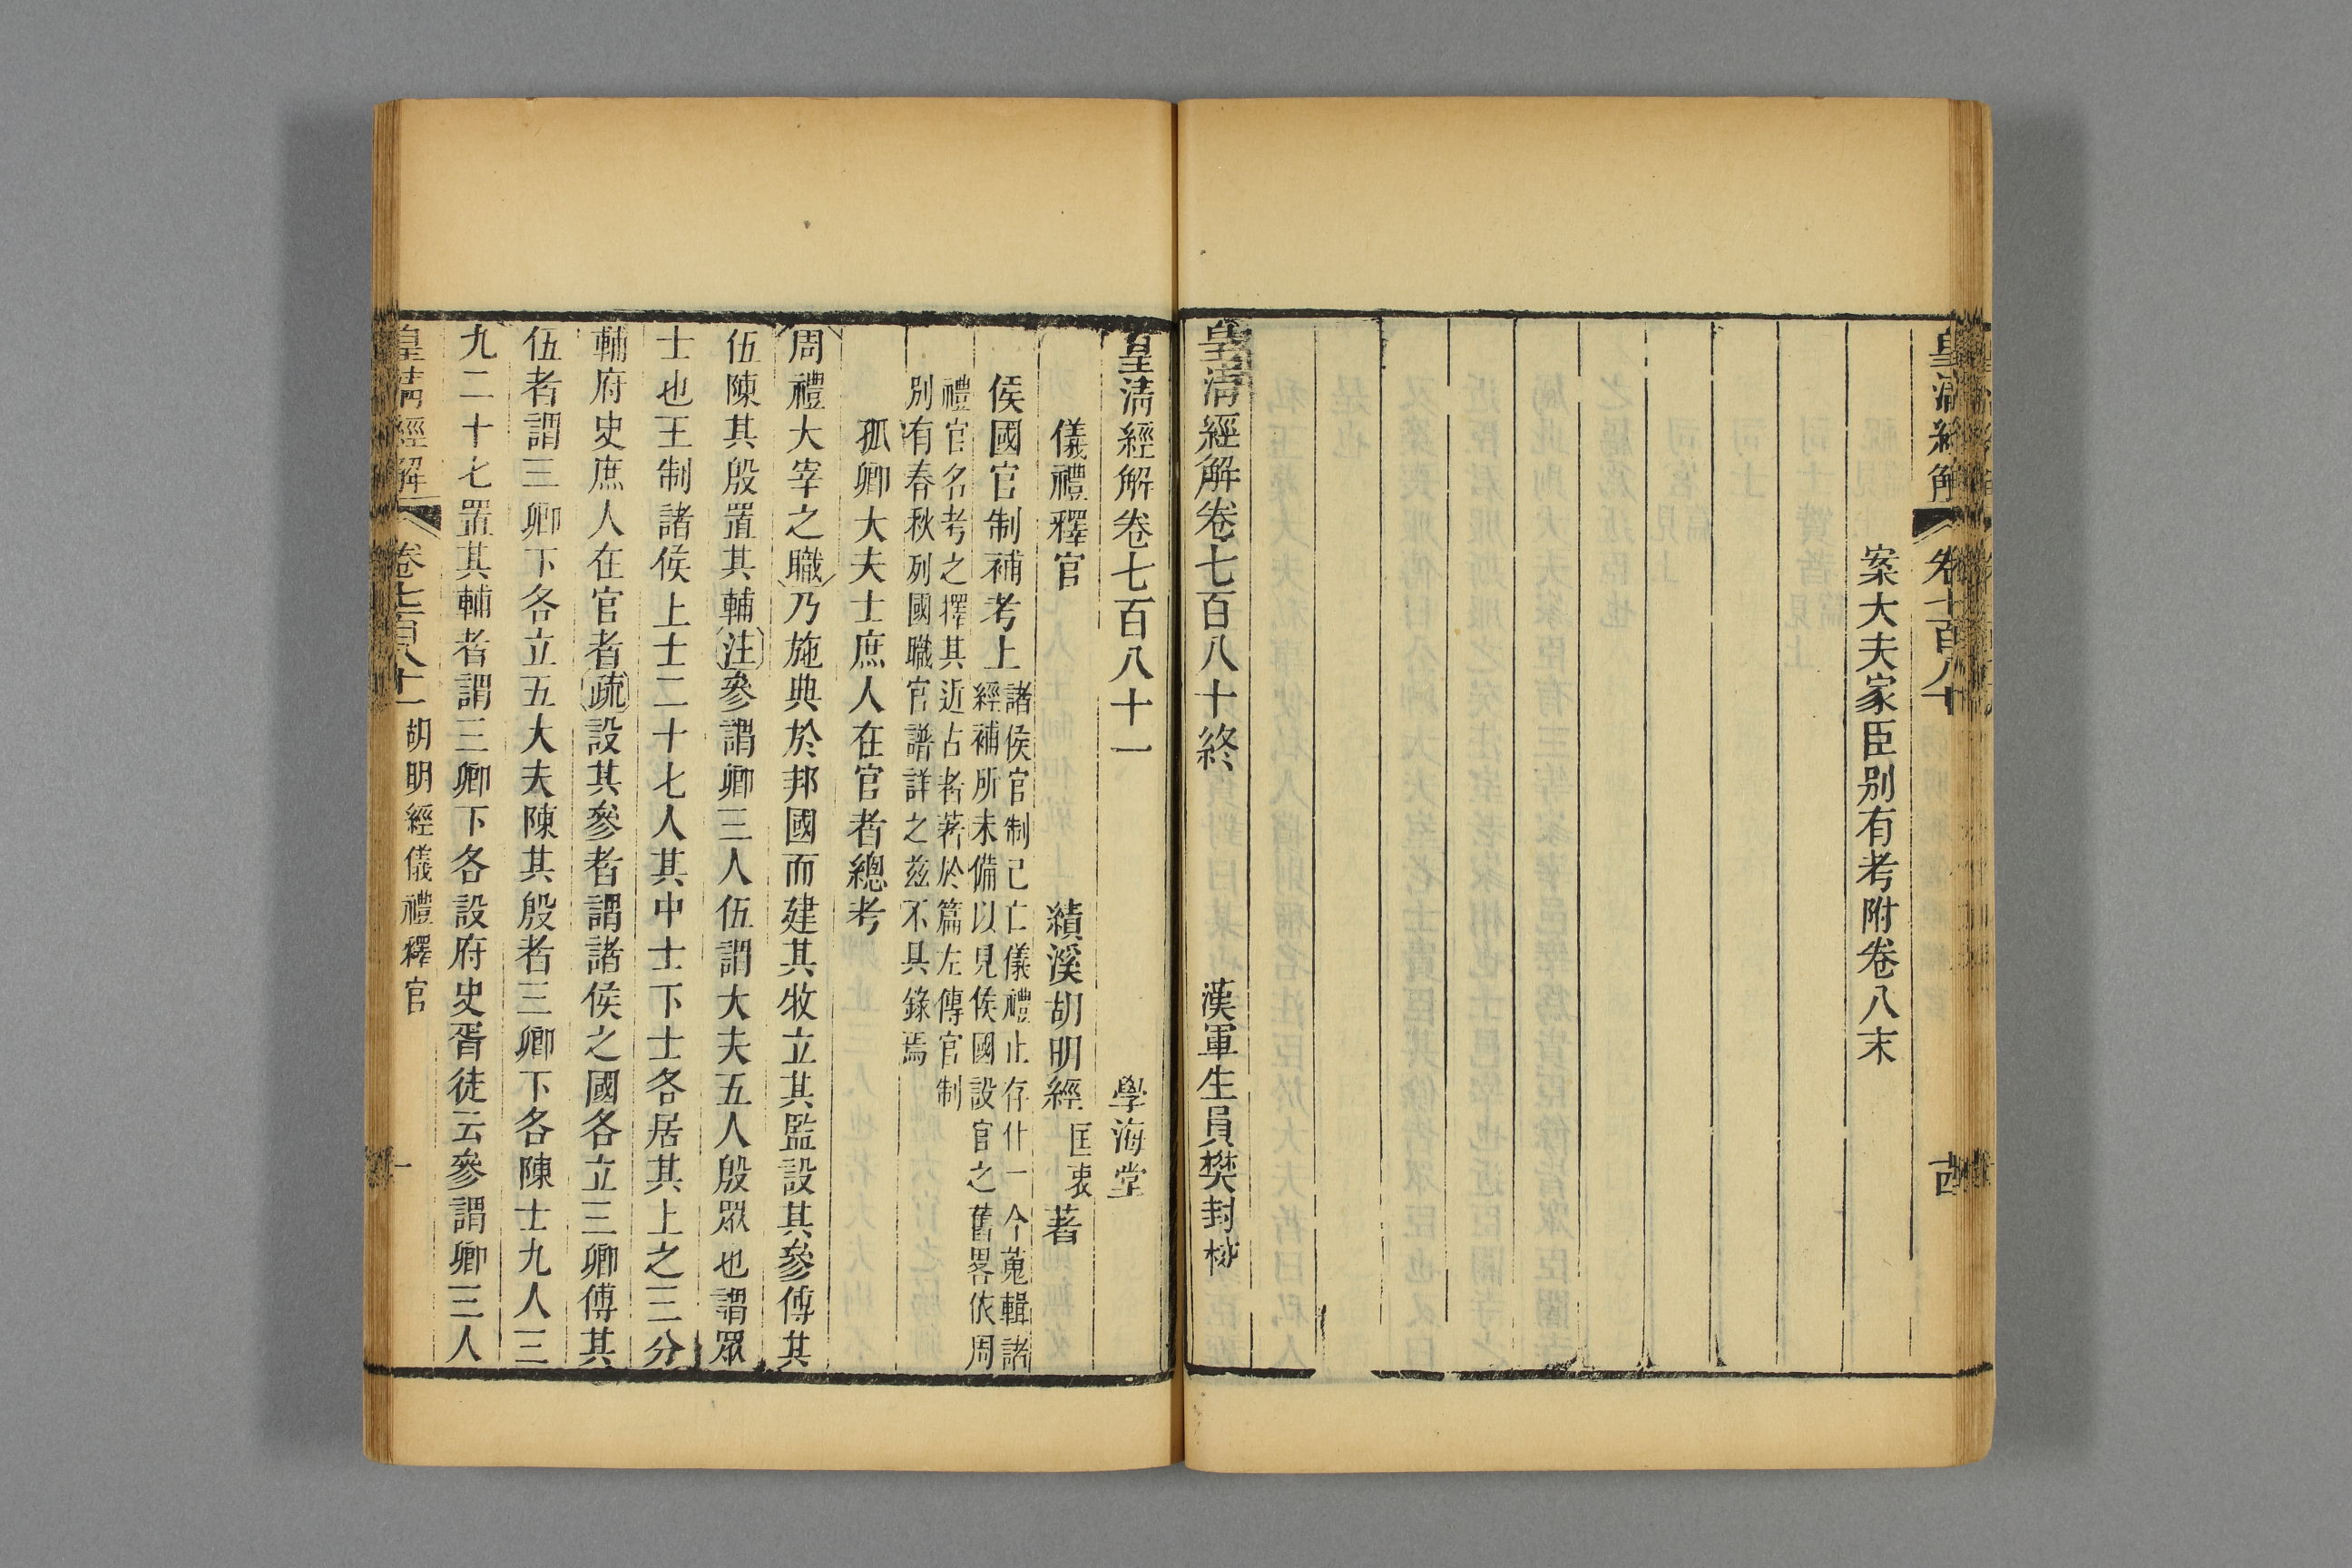 皇清經解
卷七百八十
案大夫家臣别有考附卷八末
皇清經解卷七百八十終
漢軍生員樊封校
皇清經解卷七百八十一
學海堂
儀禮釋官
績溪胡明經匡衷著
侯國官制補考上
諸侯官制已亡儀禮止存什一今蒐輯諸
經補所未備以見侯國設官之舊畧依周
禮官名考之擇其近占者著於篇左傳官制
別有春秋列國職官譜詳之茲不具錄焉
孤卿大夫士庶人在官者總考
周禮大宰之職乃施典於邦國而建其牧立其監設其參傅其
伍陳其殷置其輔注參謂卿三人伍謂大夫五人殷眾也謂眾
士也王制諸侯上士二十七人其中士下士各居其上之三分
輔府史庶人在官者疏設其參者謂諸侯之國各立三卿傅其
伍者謂三卿下各立五大夫陳其殷者三卿下各陳士九人三
九二十七置其輔者謂三卿下各設府史胥徒云參謂卿三人
皇清經解
卷七百八十一
胡明經儀禮釋官
一